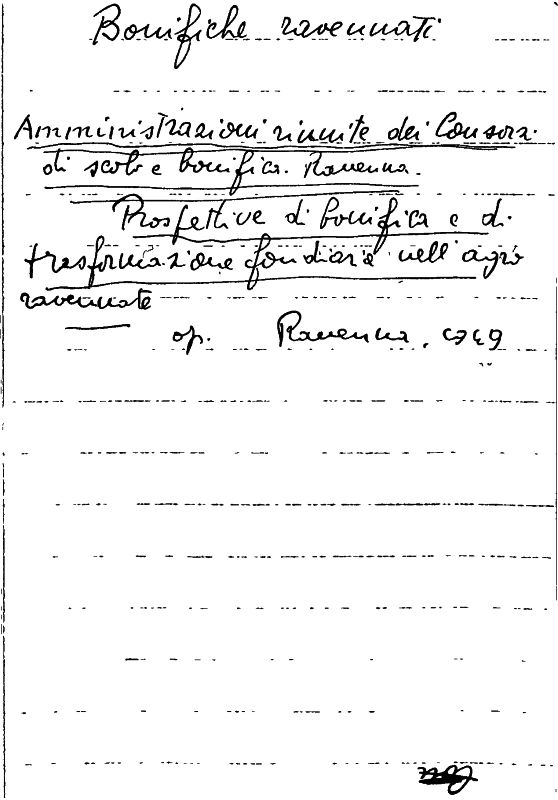 Bonifiche ravennati
Amministrazioni riunite dei Consorzi
di scolo e bonifica. Ravenna.
Prospettive di bonifica e di
trasformazione fondiaria nell'agro
ravennate
op. Ravenna, 1949